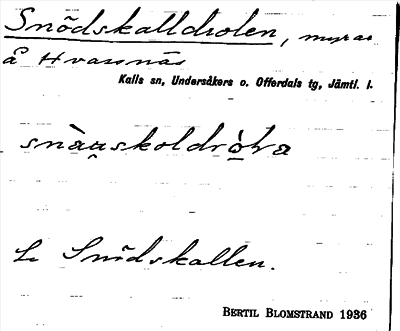 Snödskalldrolen, myrar
å Hvassnäs
Kalls sn, Undersåkers o. Offerdals tg, Jämtl. l.
Snödskallen.
BERTIL BLOMSTRAND 1936